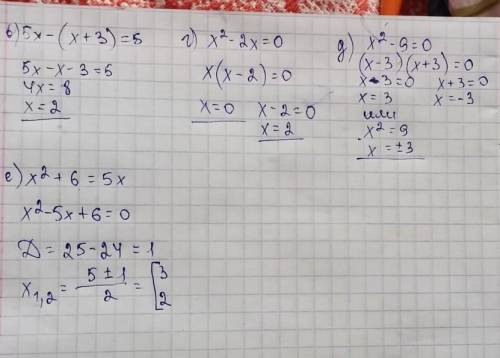 в) 5x-(x+3)=5
5x-x-3=5
4x=8
x=2
г) x²-2x=0
x(x-2)=0
x=0 x-2=0
x=2
д) x²-9=0
(x-3)(x+3)=0
x-3=0 x+3=0
x=3 x=-3
или
x²=9
x=±3
е) x²+6=5x
x²-5x+6=0
D=25-24=1
x₁,₂ = (5±1)/2 = [3
2